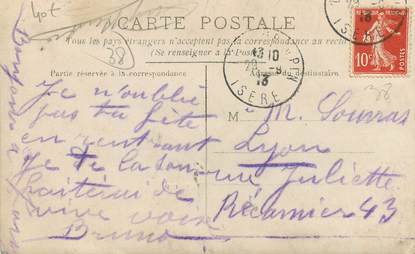 40f
CARTE POSTALE
Tous les pays étrangers n'acceptent pas la correspondance au recto
(Se renseigner à la Poste)
38
Partie réservée à la correspondance
Adresse du destinataire
ISERE
10
Je n'oublie
pas ta fête
en rentrant
Je te la sou-
haiterai de
vive voix
Bruno
M
M. Souvras
Lyon
rue Juliette
Récamier 43
38